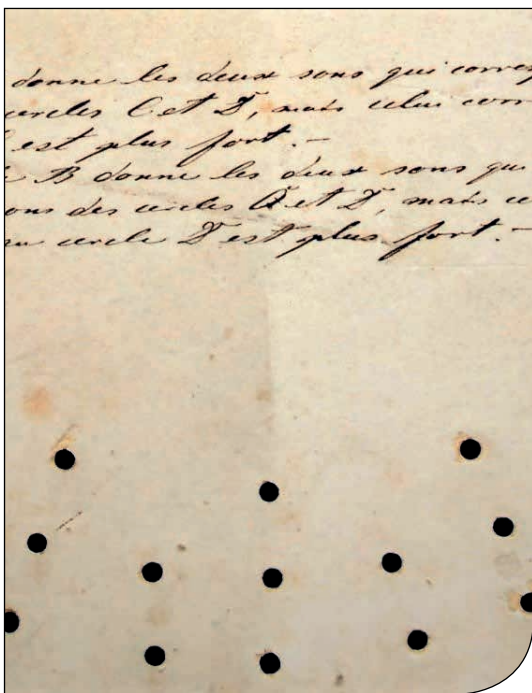 donne les deux sons qui corres
cercles C et D, mais celui corr
est plus fort. —
B donne les deux sons qui
ons des cercles A et D, mais ce
au cercle D est plus fort. —